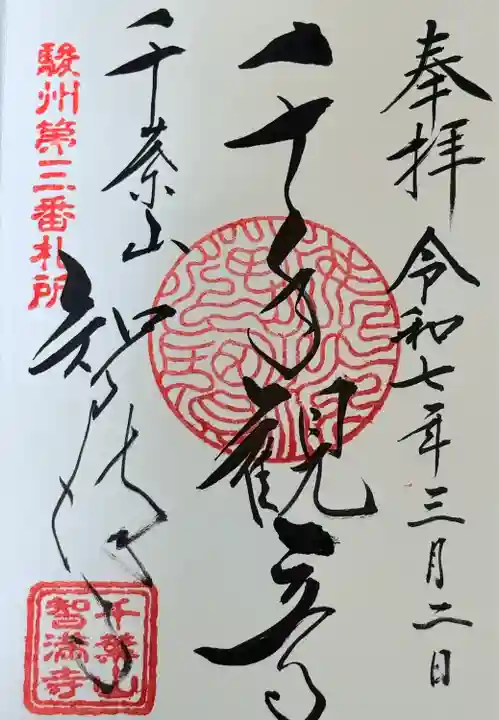 奉拝 令和七年三月二日
千手観音
千葉山 智満寺
駿州第三番札所
千葉山
智満寺